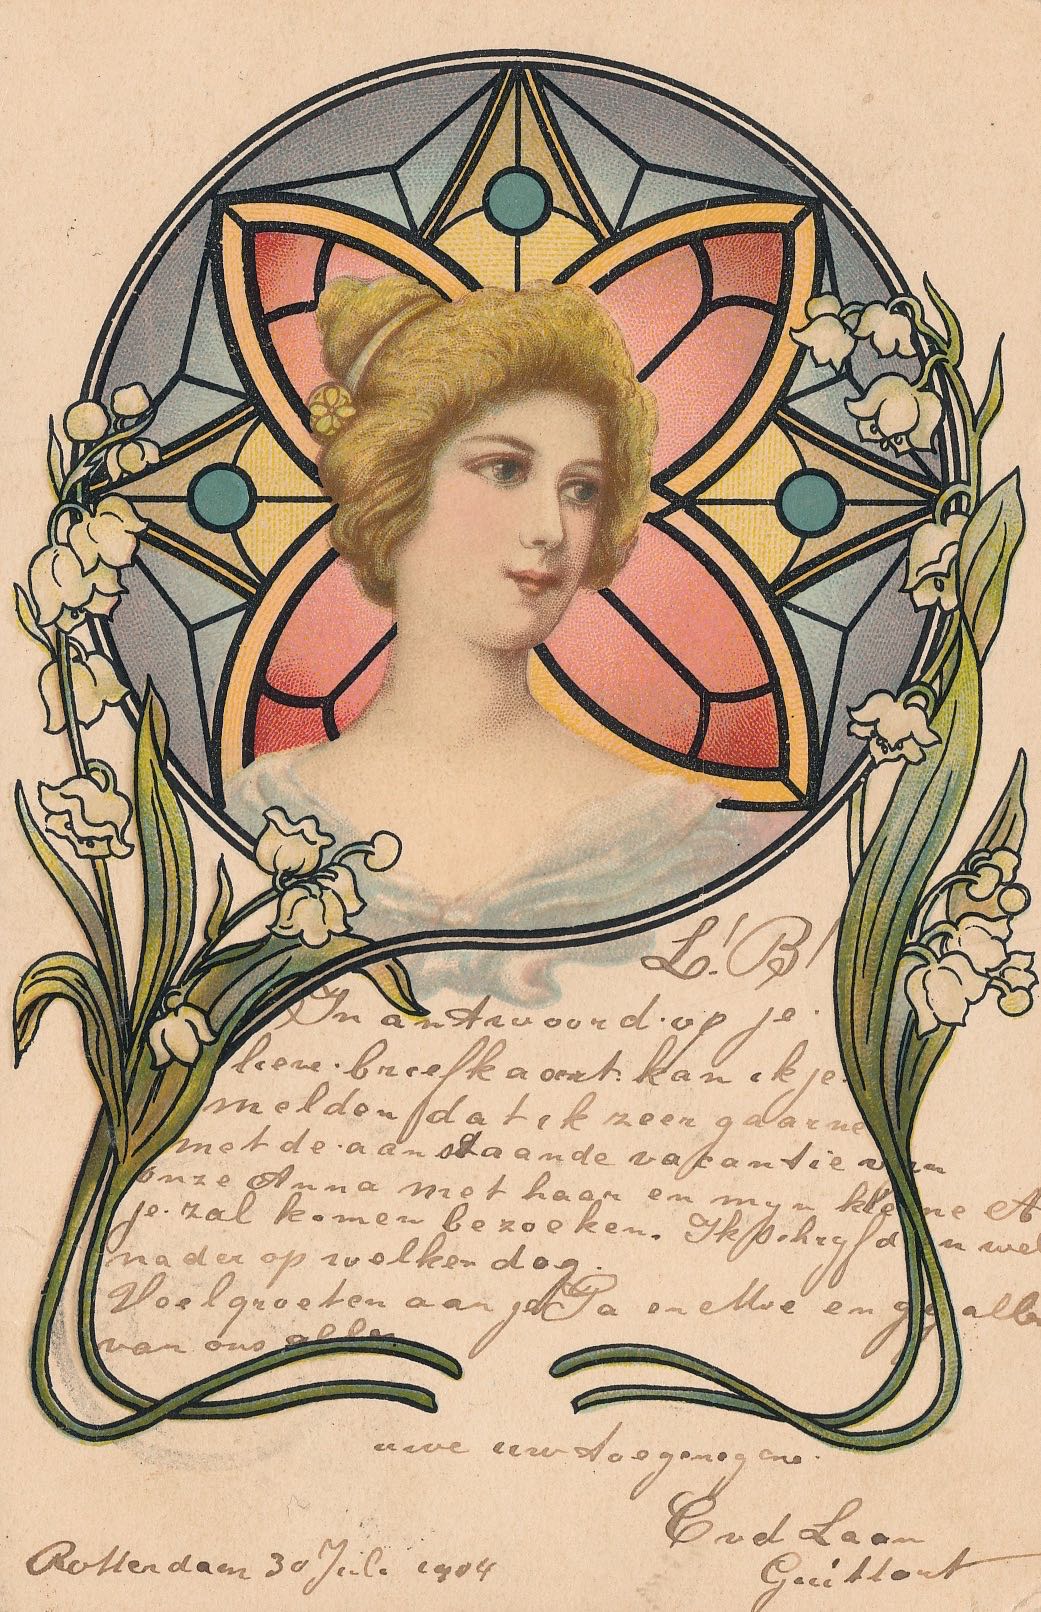 L! B!
In antwoord op je
lieve briefkaart kan ik je
melden dat ik zeer gaarne
met de aanstaande vacantie van
onze Anna met haar en myn kleine A
je zal komen bezoeken. Ik schryf dan wel
nader op welken dag.
Veel groeten aan je Pa en Moe en gy allen
van ons allen
uwe uw toegenegene
C vd Laan
Rotterdam 30 Juli 1904